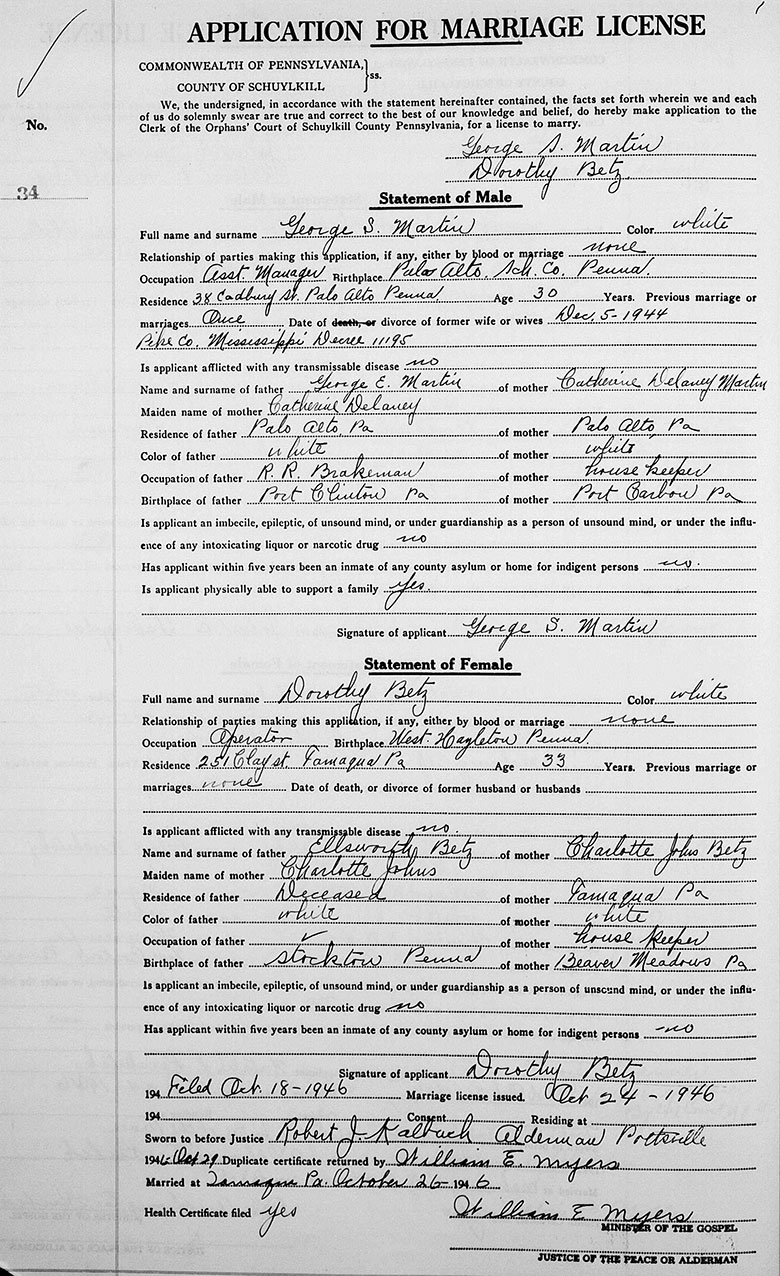 APPLICATION FOR MARRIAGE LICENSE
COMMONWEALTH OF PENNSYLVANIA,
COUNTY OF SCHUYLKILL } ss.
We, the undersigned, in accordance with the statement hereinafter contained, the facts set forth wherein we and each
No.
of us do solemnly swear are true and correct to the best of our knowledge and belief, do hereby make application to the
Clerk of the Orphans' Court of Schuylkill County Pennsylvania, for a license to marry.
George S. Martin
Dorothy Betz
34
Statement of Male
Full name and surname George S. Martin Color white
Relationship of parties making this application, if any, either by blood or marriage none
Occupation Asst. Manager Birthplace Palo Alto, Sch. Co. Penna.
Residence 38 Cadbury St. Palo Alto Penna Age 30 Years. Previous marriage or
marriages Once Date of death, or divorce of former wife or wives Dec. 5-1944
Pike Co. Mississippi Decree 11195
Is applicant afflicted with any transmissable disease no
Name and surname of father George E. Martin of mother Catherine Delaney Martin
Maiden name of mother Catherine Delaney
Residence of father Palo Alto, Pa of mother Palo Alto, Pa
Color of father white of mother white
Occupation of father R. R. Brakeman of mother house keeper
Birthplace of father Port Clinton Pa of mother Port Carbon Pa
Is applicant an imbecile, epileptic, of unsound mind, or under guardianship as a person of unsound mind, or under the influ-
ence of any intoxicating liquor or narcotic drug no
Has applicant within five years been an inmate of any county asylum or home for indigent persons no.
Is applicant physically able to support a family yes.
Signature of applicant George S. Martin
Statement of Female
Full name and surname Dorothy Betz Color white
Relationship of parties making this application, if any, either by blood or marriage none
Occupation Operator Birthplace West Hazleton Penna.
Residence 251 Clay st. Tamaqua Pa Age 33 Years. Previous marriage or
marriages none Date of death, or divorce of former husband or husbands
Is applicant afflicted with any transmissable disease no.
Name and surname of father Ellsworth Betz of mother Charlotte Johns Betz
Maiden name of mother Charlotte Johns
Residence of father Deceased of mother Tamaqua Pa
Color of father white of mother white
Occupation of father of mother house keeper
Birthplace of father Stockton Penna of mother Beaver Meadows Pa
Is applicant an imbecile, epileptic, of unsound mind, or under guardianship as a person of unsound mind, or under the influ-
ence of any intoxicating liquor or narcotic drug no
Has applicant within five years been an inmate of any county asylum or home for indigent persons no
Signature of applicant Dorothy Betz
194 Filed Oct. 18-1946 Marriage license issued. Oct 24-1946
194 Consent Residing at
Sworn to before Justice Robert J. Kalbach Alderman Pottsville
1946 Oct 29 Duplicate certificate returned by William E. Myers
Married at Tamaqua Pa. October 26 1946
Health Certificate filed yes William E Myers
MINISTER OF THE GOSPEL
JUSTICE OF THE PEACE OR ALDERMAN